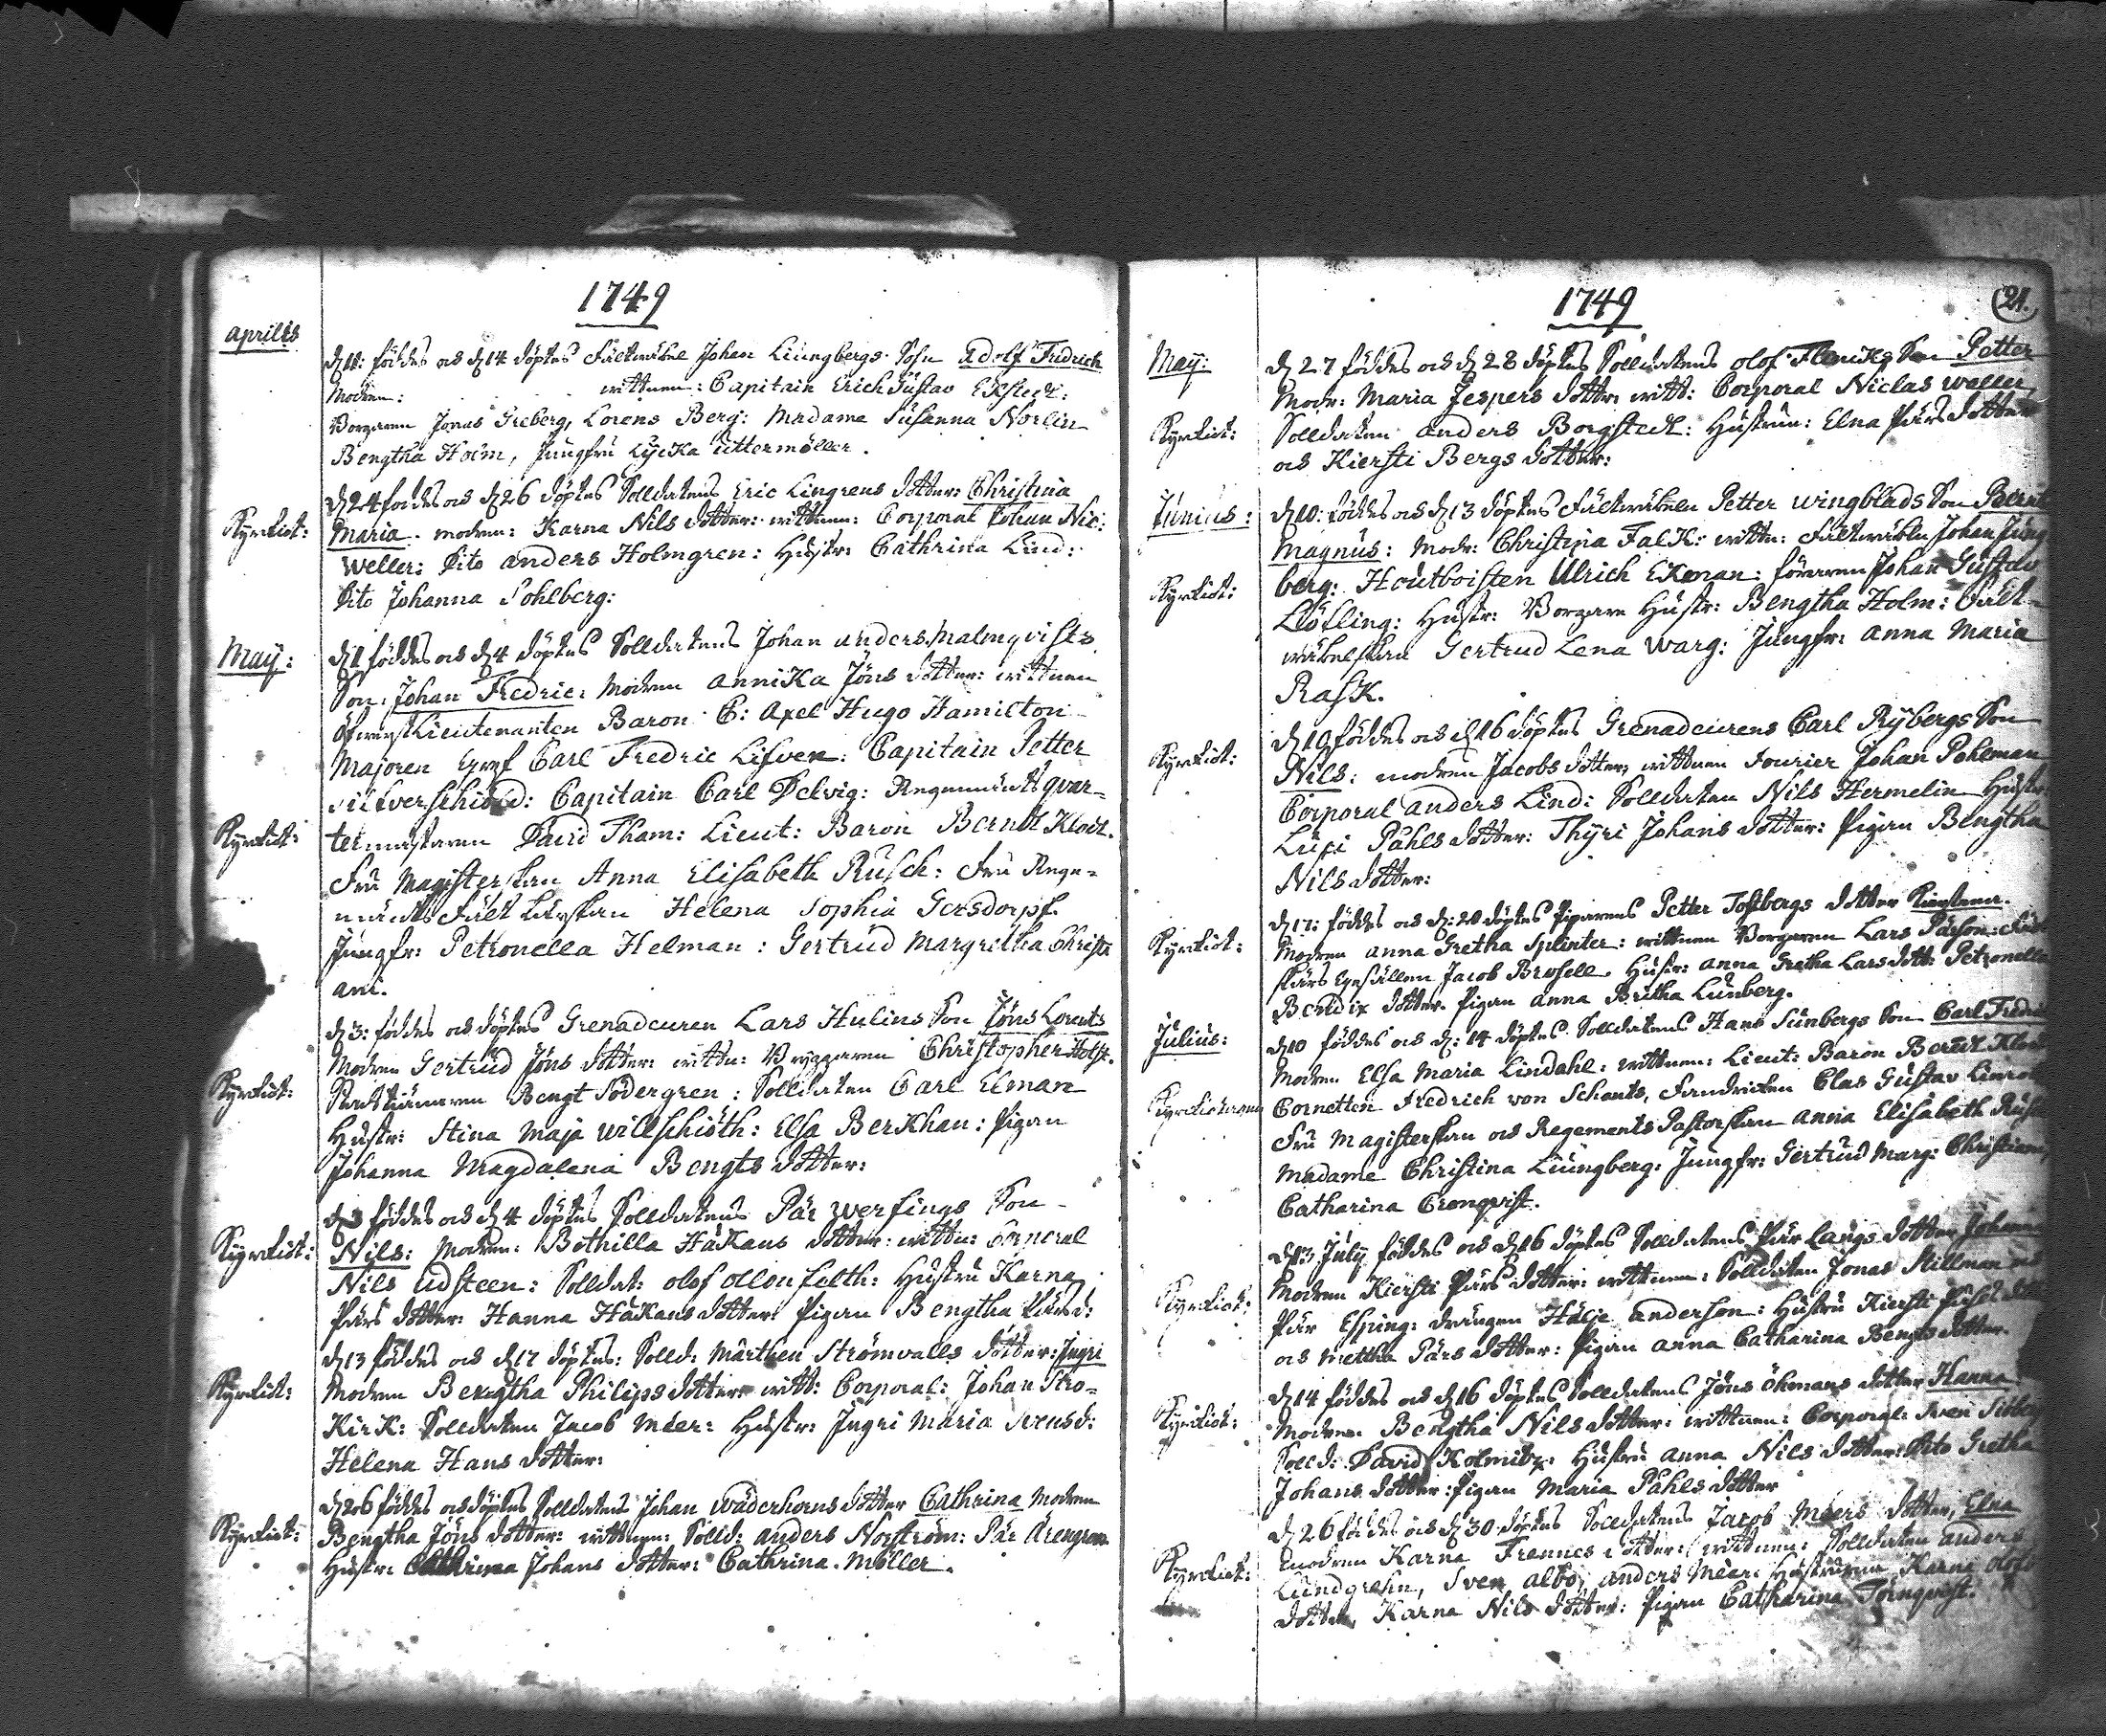 1749
Aprilis
d 11: föddes ock d 14 döptes Fältwäbel Johan Liungbergs Sohn Adolf Fredrich
Modren: wittnen: Capitain Erich Gustav Ekstedt:
Borgaren Jonas Greberg, Lorens Berg: Madame Susanna Norlin
Bengtha Holm, Jungfru Lycka Uttermöller.
d 24 foddes ock d 26 döptes Solldatens Eric Lingrens dotter: Christina
Kyrkiot: Maria. modren: Karna Nils dotter: wittnen: Corporal Johan Nic:
Weller: Dito anders Holmgren: Hustr: Cathrina Lind:
Dito Johanna Sohlberg:
May: d 1 föddes ock d 4 döptes Solldatens Johan anders Malmqvists
Son: Johan Fredric: Modren annika Jöns dotter: wittnen
Öfwerst Lieutenanten Baron C: Axel Hugo Hamilton
Majoren Gref Carl Fredric Lifven: Capitain Petter
Silfverschiöld: Capitain Carl Delvig: Regements qvar-
Kyrkiot: termestaren David Tham: Lieut: Baron Berndt Klot.
Fru Magisterskan Anna Elisabeth Rusch: Fru Rege-
ments Fält Lärskan Helena Sophia Gersdorpf.
Jungfr: Petronella Helman: Gertrud Margretha Christi
ani.
d 3: föddes ock döptes Grenadeuren Lars Hulins Son Jöns Lorents
Modren Gertrud Jöns dotter: wittn: Bryggaren Christopher Holst.
Kyrkiot: Bengt Södergren: Solldaten Carl Elman
Hustr: Stina Maja Willschiöth: Elsa Berkhan: Pigan
Johanna Magdalena Bengts dotter:
d 3 föddes ock d 4 döptes Solldatens Pär Werfings Son
Kyrkiot: Nils: Modren: Bothilla Håkans dotter: wittn: Corporal
Nils Udsteen: Solldat: olof ollonfelth: Hustru Karna
Pärs dotter: Hanna Håkans dotter: Pigan Bengtha
d 13 föddes ock d 17 döptes: Solld: Mårthen Strömvalls dotter: Ingri
Kyrkiot: Modren Bengtha Philips dotter: witt: Corporal: Johan Stro-
Kirk: Solldaten Jacob Méer: Hustr: Ingri Maria Svensd:
Helena Hans dotter:
d 26 föddes ock döptes Solldatens Johan Wäderhorns dotter Cathrina Modren
Kyrkiot: Bengtha Jöns dotter: wittnen: Solld: anders Norström: Pär Ärengren
Hustr: Cathrina Johans dotter: Cathrina Möller.
1749
21.
May: d 27 föddes ock d 28 döptes Solldatens olof Flenikz Son Petter
Modr: Maria Jespers dotter witt: Corporal Niclas Weller
Kyrkiot: Solldaten anders Borgstedt: Hustrun: Elna Pärs dotter
ock Kiersti Bergs dotter:
Junius: d 10: föddes ock d 13 döptes Fältwäbelen Petter Wingblads Son Bernt
Magnus: Modr: Christina Falk: wittn: Fältwäblen Johan Liung
Kyrkiot: berg: Houtboisten Ulrich Ekman: föraren Johan Gustav
Löfling: Hustr: Borgare Hustr: Bengtha Holm: Fält-
wäbelskan Gertrud Lena Warg: Jungfr: anna Maria
Rask.
d 10 föddes ock d 16 döptes Grenadeurens Carl Rybergs Son
Kyrkiot: Nils: modren Jacobs dotter: wittnen Fourier Johan Pohlman
Corporal anders Lind: Solldaten Nils Hermelin Hustr:
Luci Påhls dotter: Thyri Johans dotter: Pigan Bengtha
Nils dotter:
d 17: föddes ock d: 20 döptes Piparens Petter Tofbergs dotter Kierstena.
Kyrkiot: Modren anna Gretha Splinter: wittnen Borgaren Lars Pärson:
skärs Gesällen Jacob Brosell Hustr: anna Gretha Lars dott: Petronella
Bendix dotter. Pigan anna Britha Lunberg.
Julius: d 10 föddes ock d: 14 döptes Solldatens Hans Sunbergs Son Carl Fredric
Modren Elsa Maria Lindahl: wittnen: Lieut: Baron Berndt Klot
Cornetten Fredrich von Schants, Fendricken Clas Gustav
Fru Magisterskan ock Regements Pastorskan anna Elisabeth Rusch
Madame Christina Liungberg: Jungfr: Gertrud Marg: Christiani
Catharina Cronqvist.
d 13 July föddes ock d 16 döptes Solldatens Pär Langs dotter Johanna
Kyrkiot: Modren Kiersti Pärs dotter: wittnen: Solldaten Jonas Stillman ock
Pär Esping: drängen Hälje anderson: Hustru Kiersti
ock Mettha Pärs dotter: Pigan anna Catharina Bengts dotter.
d 14 föddes ock d 16 döptes Solldatens Jöns öhmans dotter Hanna
Kyrkiot: Modren Bengtha Nils dotter: wittnen: Corporal: Sven
Solld: David Kolmitz: Hustru anna Nils dotter: Dito Gretha
Johans dotter: Pigan Maria Påhls dotter
d 26 föddes ock d 30 döptes Solldatens Jacob Méers dotter, Elna
Kyrkiot: modren Karna Frennes dotter: wittnen: Solldaten anders
Lundgrehn, Sven albo, anders Méer: Hustrurna Karna olofs
dotter, Karna Nils dotter: Pigan Catharina Törnqvist.